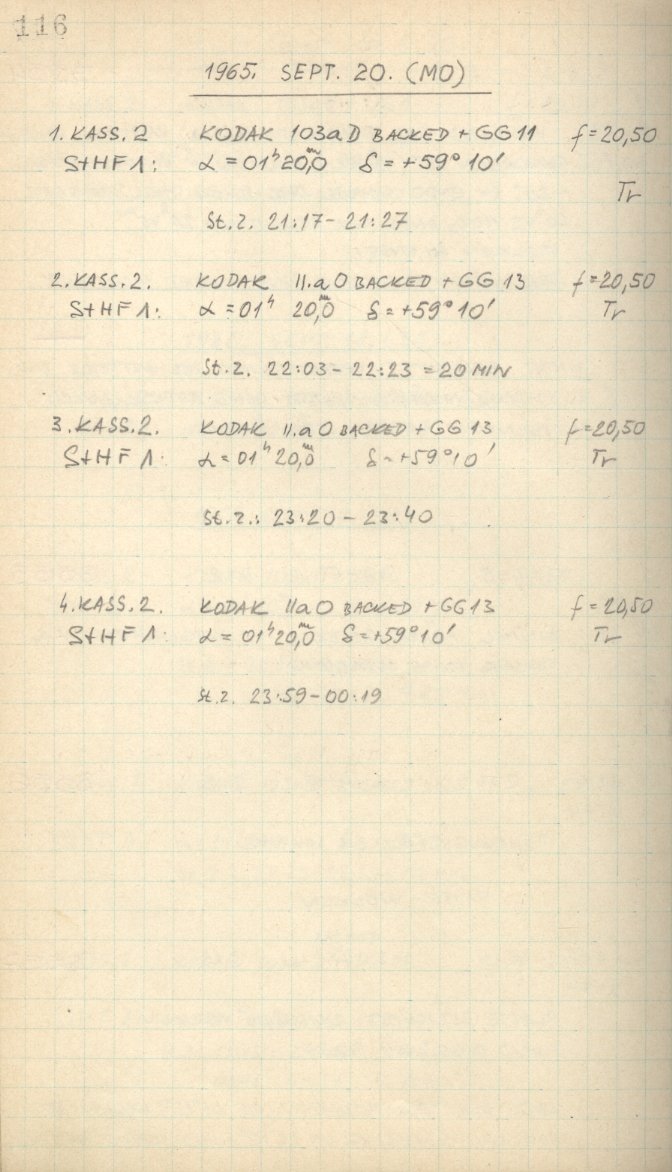 116
1965. SEPT. 20. (MO)
1. KASS. 2 KODAK 103aD BACKED + GG11 f = 20,50
S+HF1: α = 01ʰ 20,ᵐ0 δ = +59° 10'
Tr
St. z. 21:17 - 21:27
2. KASS. 2. KODAK II.aO BACKED + GG 13 f = 20,50
S+HF1: α = 01ʰ 20,ᵐ0 δ = +59° 10' Tr
St. z. 22:03 - 22:23 = 20 MIN
3. KASS. 2. KODAK II.aO BACKED + GG 13 f = 20,50
S+HF1: α = 01ʰ 20,ᵐ0 δ = +59° 10' Tr
St. z.: 23:20 - 23:40
4. KASS. 2. KODAK IIaO BACKED + GG13 f = 20,50
S+HF1: α = 01ʰ 20,ᵐ0 δ = +59° 10' Tr
St. z. 23:59 - 00:19